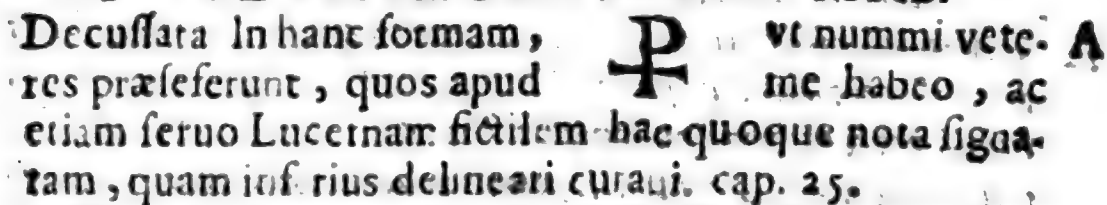 Decuſſata In hanc formam, ⳨ vt nummi vete- A
res præſeferunt, quos apud me habeo, ac
etiam ſeruo Lucernam fictilem hac quoque nota ſigna-
tam, quam inferius delineari curaui. cap. 25.